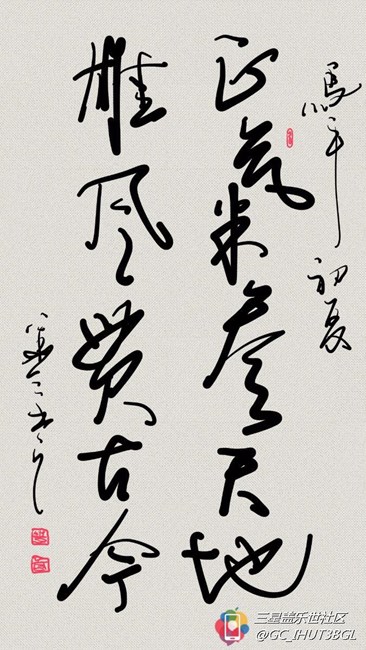 馬年初夏
正氣叅天地
雄风贯古今
三星盖乐世社区
@GC_IHUT3BGL